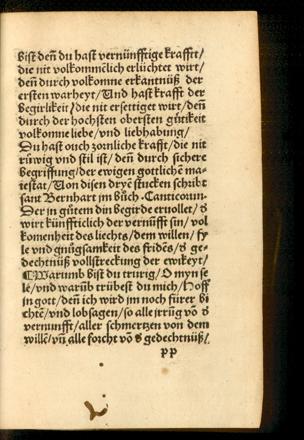 bist deñ du hast vernünfftige krafft/
die nit volkommẽlich erlüchtet wirt/
deñ durch volkomne erkantnüß der
ersten warheyt/ Und hast krafft der
begirlikeit/ die nit ersettiget wirt/ deñ
durch der hochsten obersten gütikeit
volkomne liebe/ vnd liebhabung/
Du hast ouch zornliche krafft/ die nit
rüwig vnd stil ist/ deñ durch sichere
begriffung/ der ewigen gottlichẽ ma-
iestat/ Von disen dryẽ stucken schribt
sant Bernhart jm bůch. Canticorum.
Der in gůtem din begirde ervollet/ d̕
wirt künffticlich der vernufft sin/ vol
komenheit des liechts/ dem willen/ fy
le vnd gnůgsamkeit des fridẽs/ d̕ ge-
dechtnüß vollstreckung der ewikeyt/
¶ Warumb bist du trurig/ O myn se
le/ vnd warüb trübest du mich/ Hoff
in gott/ deñ ich wird jm noch fürer bi
chtẽ/ vnd lobsagen/ so alle jrrũg võ d̕
vernunfft/ aller schmertzen von dem
willẽ/ vñ alle forcht võ d̕ gedechtnüß/
pp